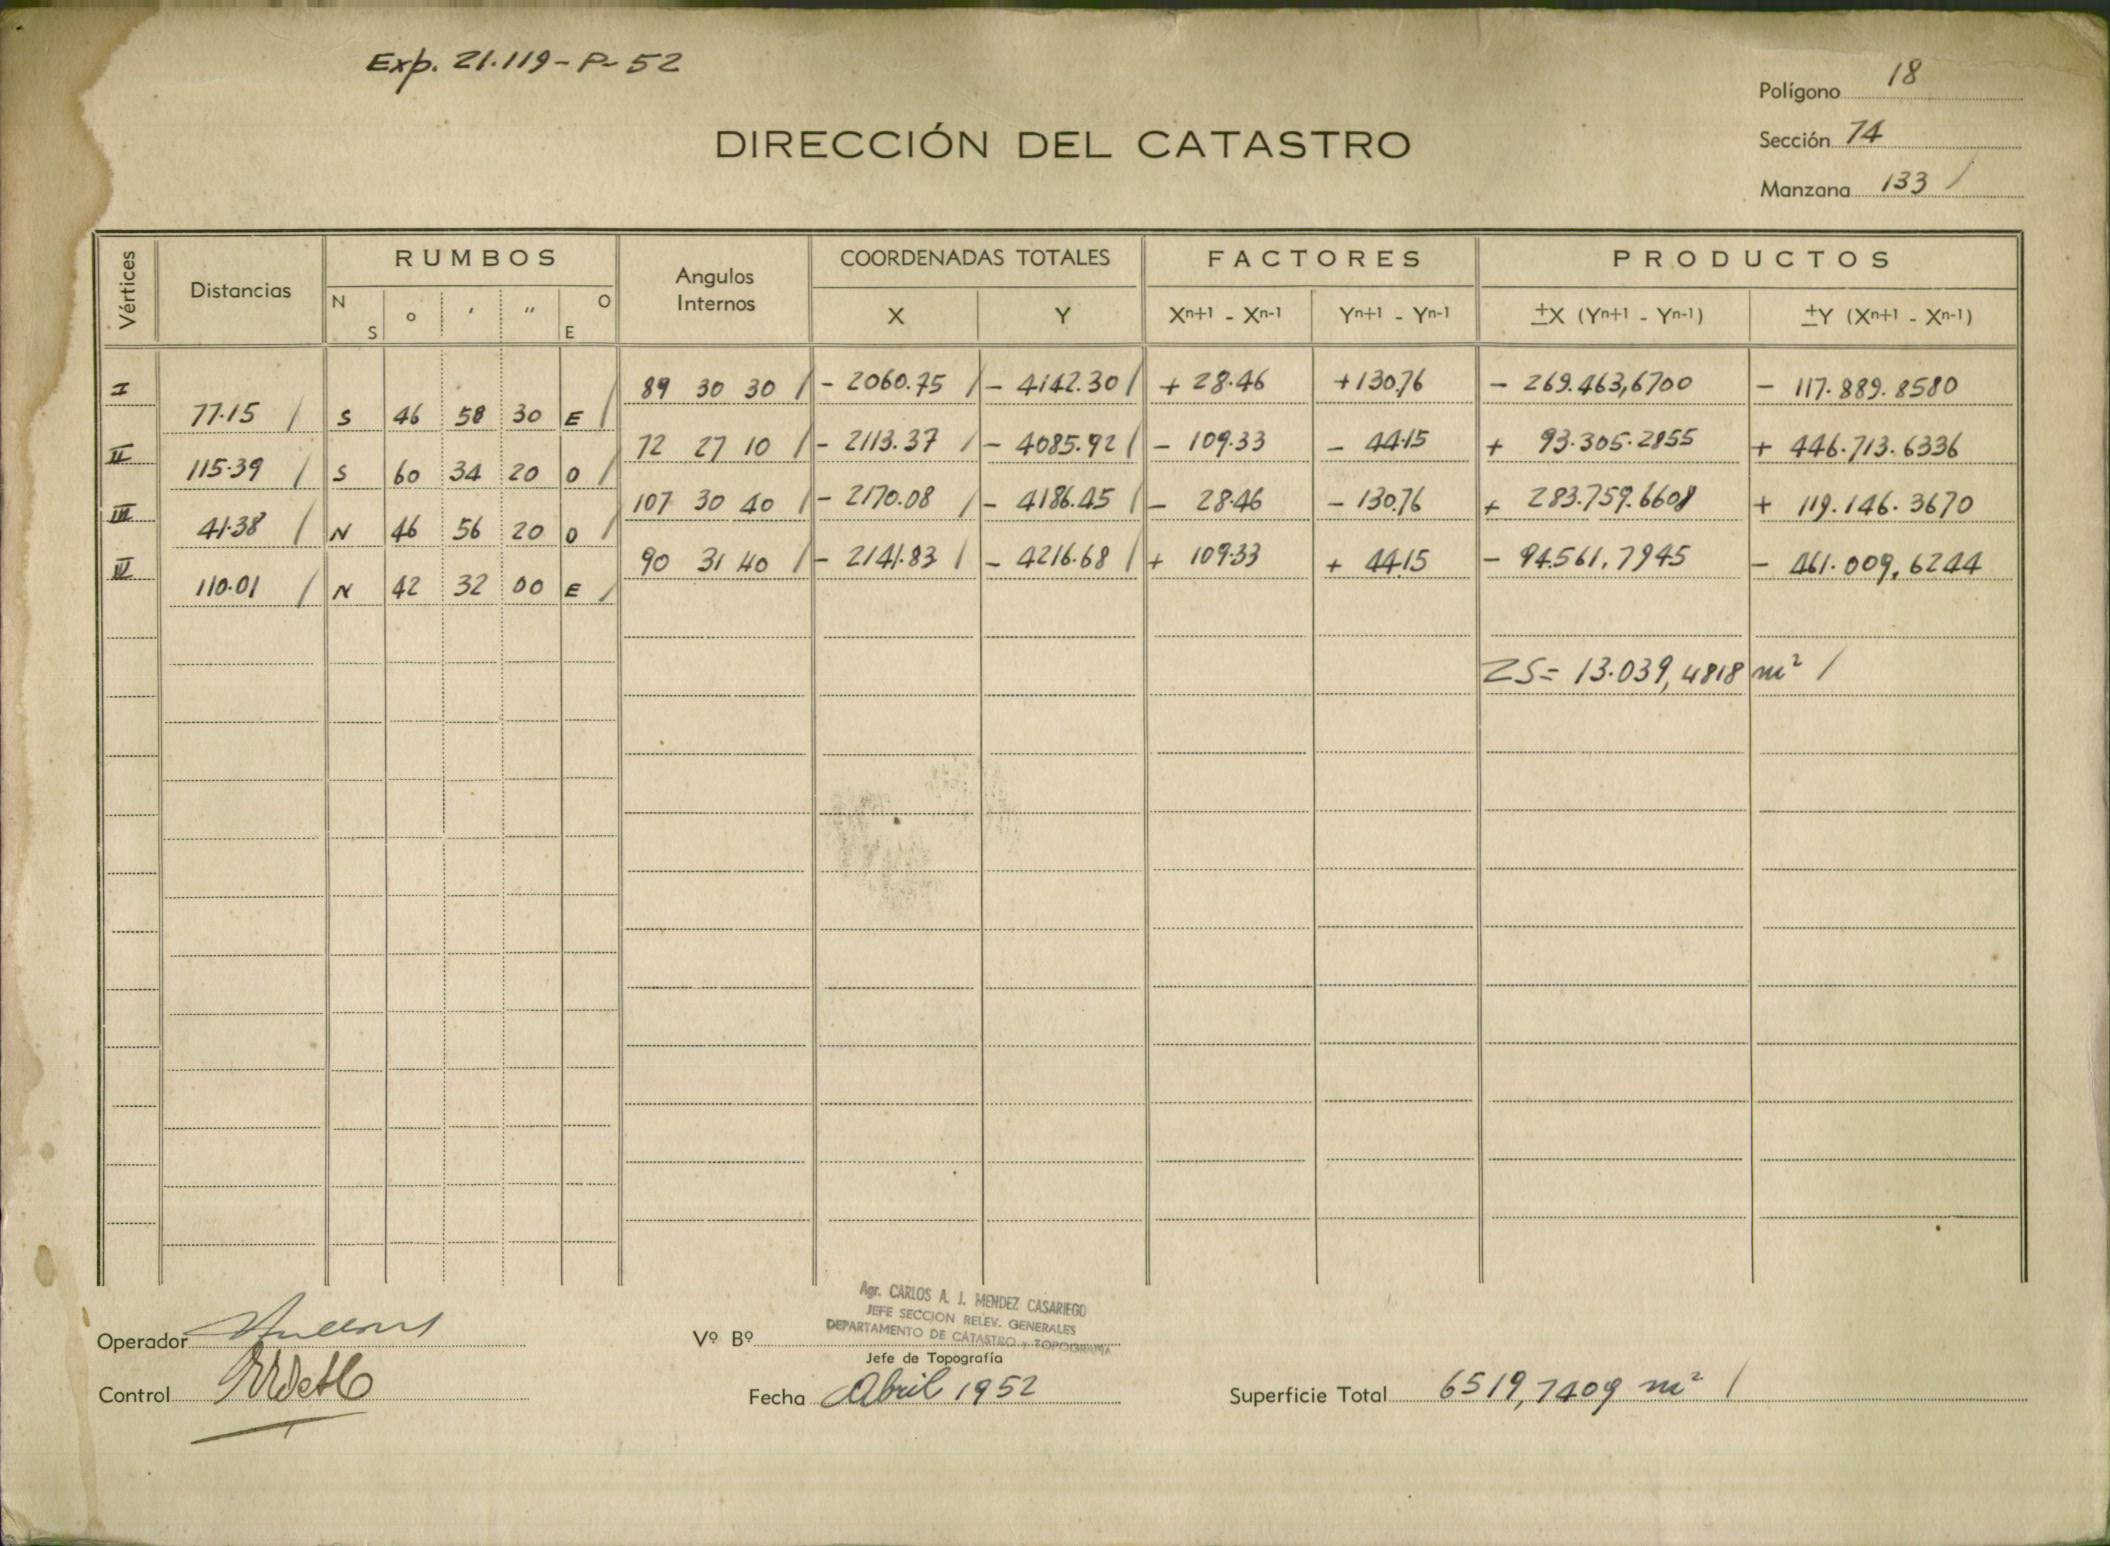 Exp. 21.119-P-52
Polígono 18
Sección 74
Manzana 133 /
DIRECCIÓN DEL CATASTRO
Vértices Distancias RUMBOS Angulos Internos COORDENADAS TOTALES FACTORES PRODUCTOS
N S ° ' " O E X Y Xn+1 - Xn-1 Yn+1 - Yn-1 ±X (Yn+1 - Yn-1) ±Y (Xn+1 - Xn-1)
I 89 30 30 / - 2060.75 / - 4142.30 / + 28.46 +130.76 - 269.463,6700 - 117.889.8580
77.15 / S 46 58 30 E /
II 72 27 10 / - 2113.37 / - 4085.92 / - 109.33 - 44.15 + 93.305.2855 + 446.713.6336
115.39 / S 60 34 20 O /
III 107 30 40 / - 2170.08 / - 4186.45 / - 28.46 - 130.76 + 283.759.6608 + 119.146.3670
41.38 / N 46 56 20 O /
IV 90 31 40 / - 2141.83 / - 4216.68 / + 109.33 + 44.15 - 94.561,7945 - 461.009,6244
110.01 / N 42 32 00 E /
2S = 13.039,4818 m² /
Agr. CARLOS A. J. MENDEZ CASARIEGO
JEFE SECCION RELEV. GENERALES
DEPARTAMENTO DE CATASTRO y TOPOGRAFIA
Operador
Vº Bº
Jefe de Topografía
Control
Fecha Abril 1952
Superficie Total 6519,7409 m² /